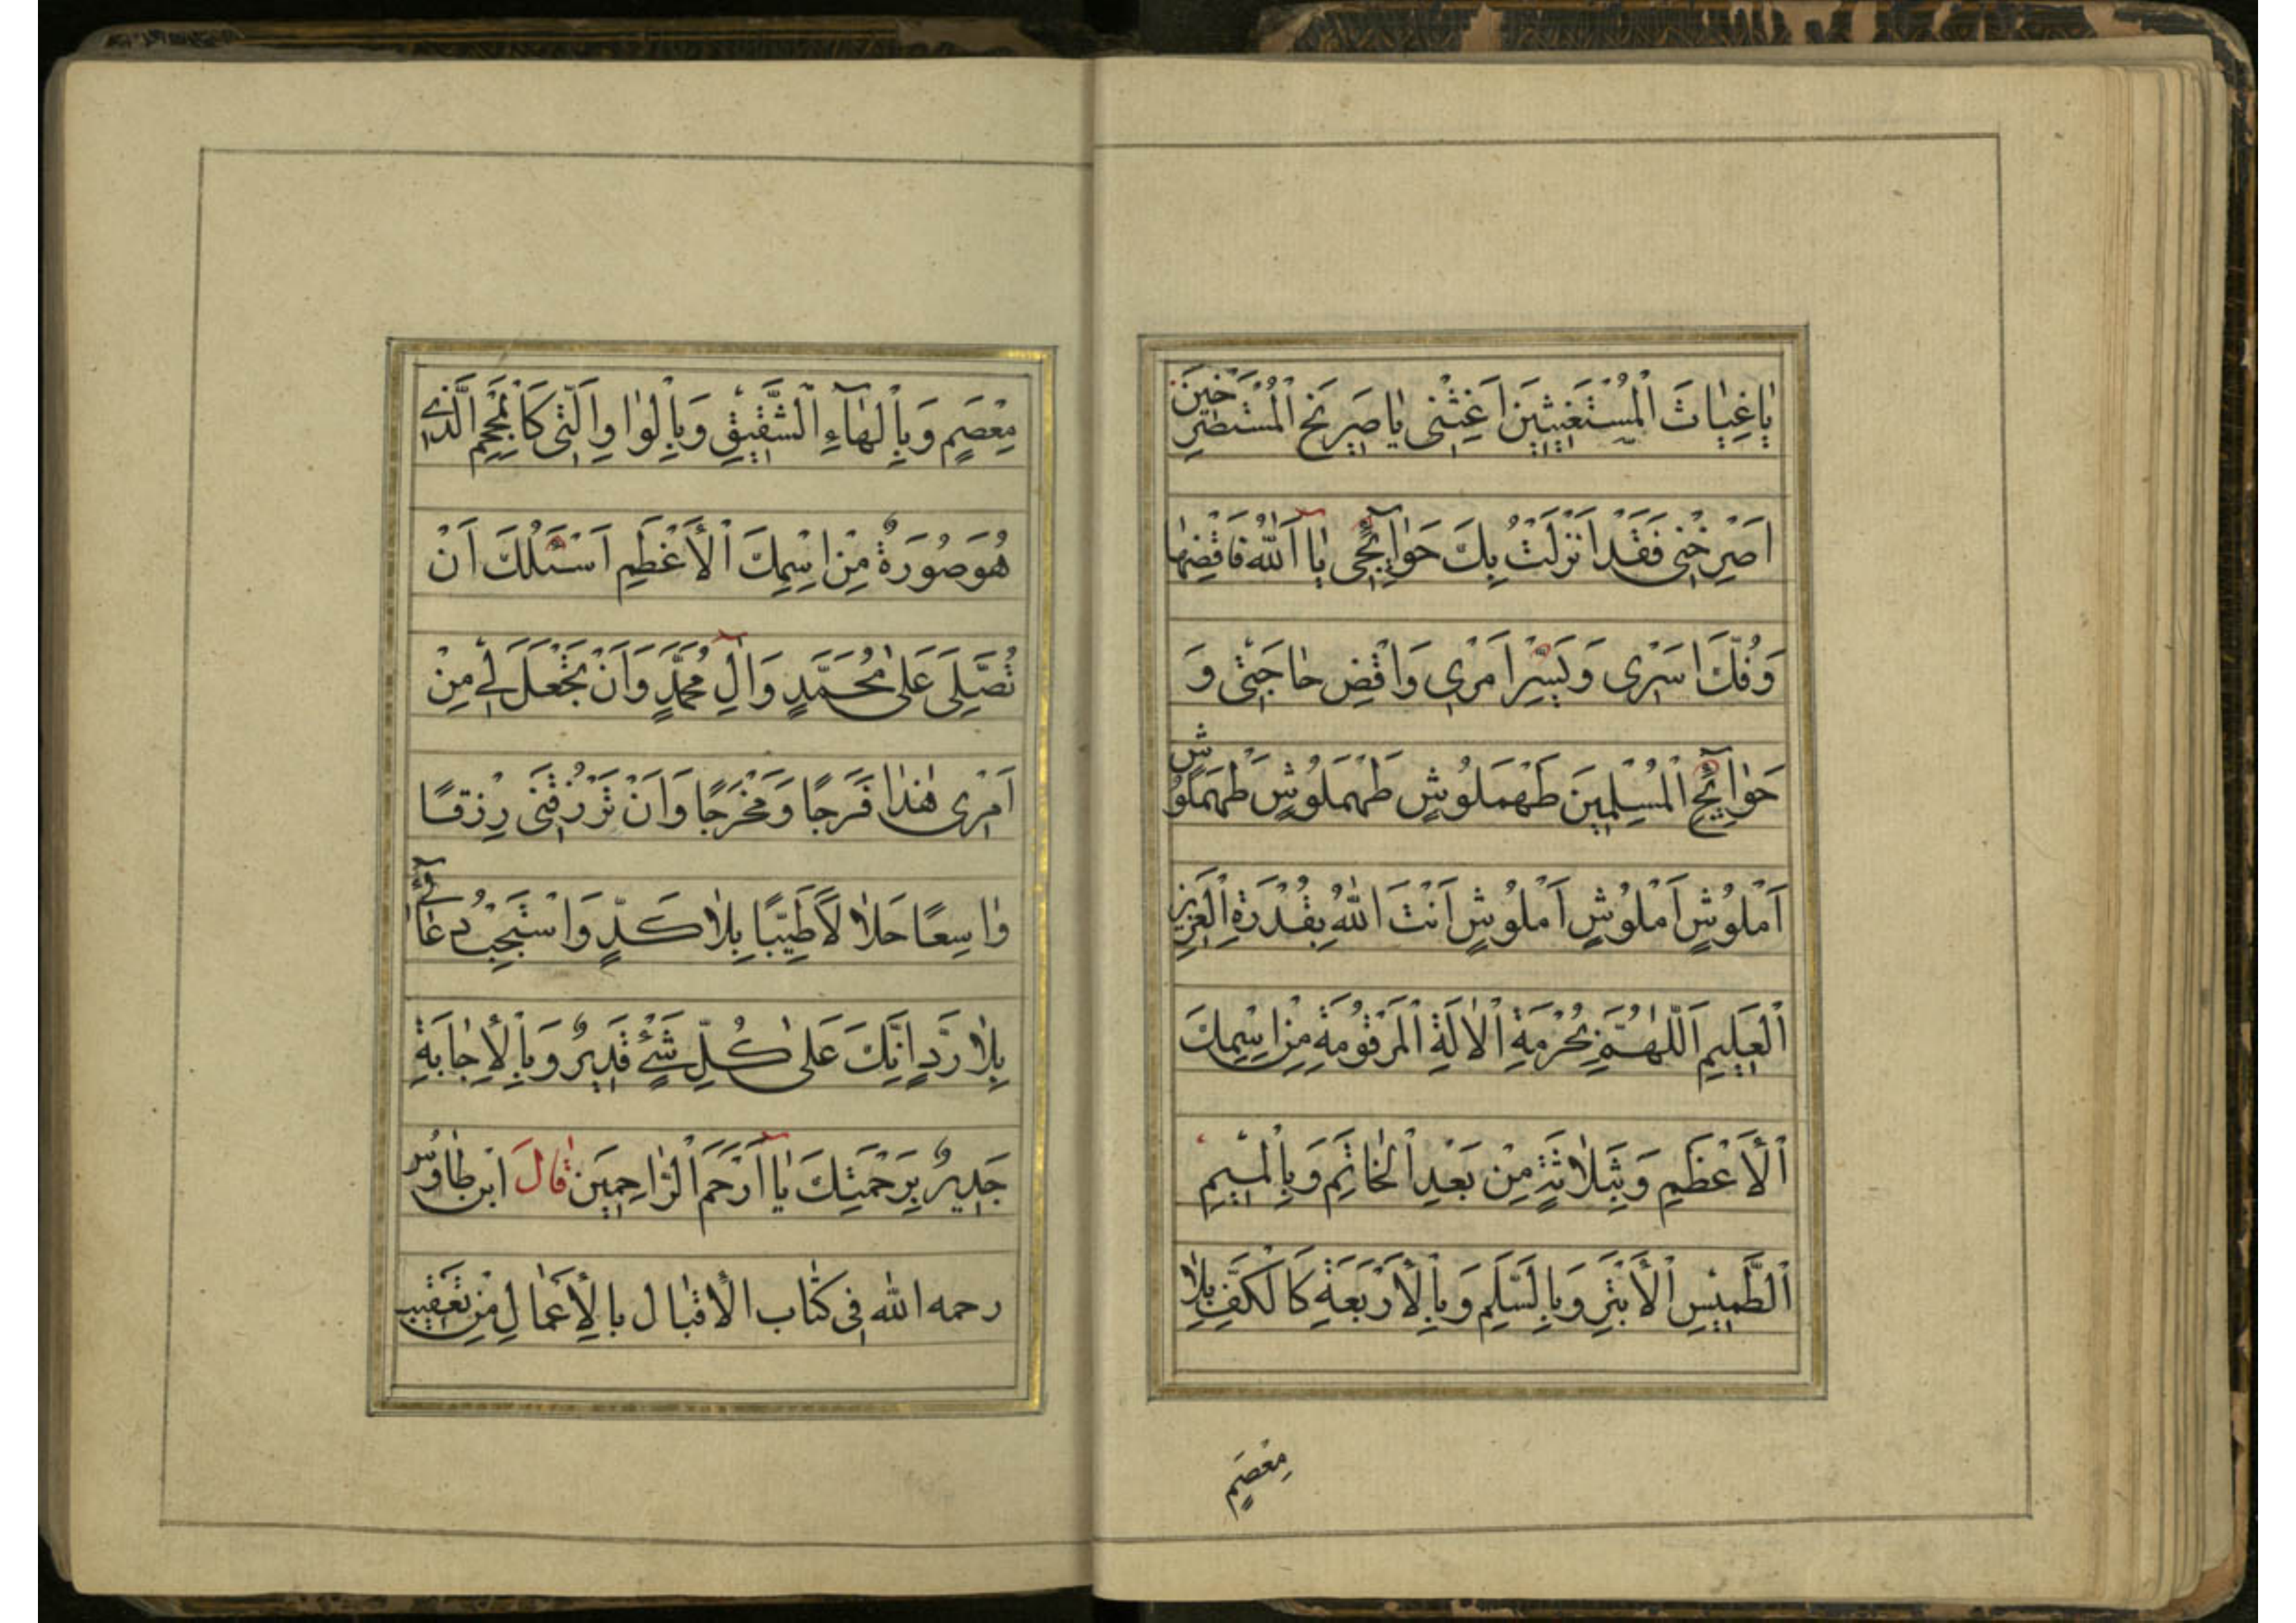 يٰا غِيٰاثَ الْمُسْتَغيثِينَ اَغِثْنى يٰا صَرِيَخ الْمُسْتَصْرِخينَ
اَصْرِخْنى فَقَدْ اَنْزَلْتُ بِكَ حَوٰآئِجى يٰا اَللّٰهُ فَاقْضِهٰا
وَفُكَّ اَسْرى وَيَسِّرْ اَمْرى وَاقْضِ حٰاجَتى وَ
حَوٰآئِجَ الْمُسْلِمِينَ طَهْمَلُوشٍ طَهْمَلُوشٍ طَهْمَلُوشٍ
اَمْلُوشٍ اَمْلُوشٍ اَمْلُوشٍ اَنْتَ اللّٰهُ بِقُدْرَةِ الْعَزِيزِ
الْعَلِيمِ اَللّٰهُمَّ بِحُرْمَةِ الْاٰلَةِ الْمَرْقُومَةِ مِنْ اسْمِكَ
الْأَعْظَمِ وَبِثَلاٰثَةٍ مِنْ بَعْدِ الْخٰاتِمِ وَبِالْميمِ
الطَّمِيْسِ الْأَبْتَرِ وَبِالسُّلَّمِ وَبِالْأَرْبَعَةِ كَالْكَفِّ بِلاٰ
مِعْصَمٍ
مِعْصَمٍ وَبِالْهٰآءِ الشَّقِيقِ وَبِالْوٰاوِ الَّتى كَالْمِحْجَمِ الَّذى
هُوَ صُورَةٌ مِنْ اسْمِكَ الْأَعْظَمِ اَسْئَلُكَ اَنْ
تُصَلِّىَ عَلىٰ مُحَمَّدٍ وَاٰلِ مُحَمَّدٍ وَاَنْ تَجْعَلَ لى مِنْ
اَمْرى هٰذٰا فَرَجًا وَمَخْرَجًا وَاَنْ تَرْزُقَنى رِزْقًا
وٰاسِعًا حَلاٰلاً طَيِّبًا بِلاٰ كَدٍّ وَاسْتَجِبْ دُعٰآئى
بِلاٰ رَدٍّ اِنَّكَ عَلىٰ كُلِّ شَىْءٍ قَدِيرٌ وَبِالْإِجٰابَةِ
جَدِيرٌ بِرَحْمَتِكَ يٰا اَرْحَمَ الرّٰاحِمِينَ قٰالَ ابن طٰاوُس
رحمه الله فى كتٰاب الاقبٰال بالأَعمٰالِ مِنْ تَعْقيب